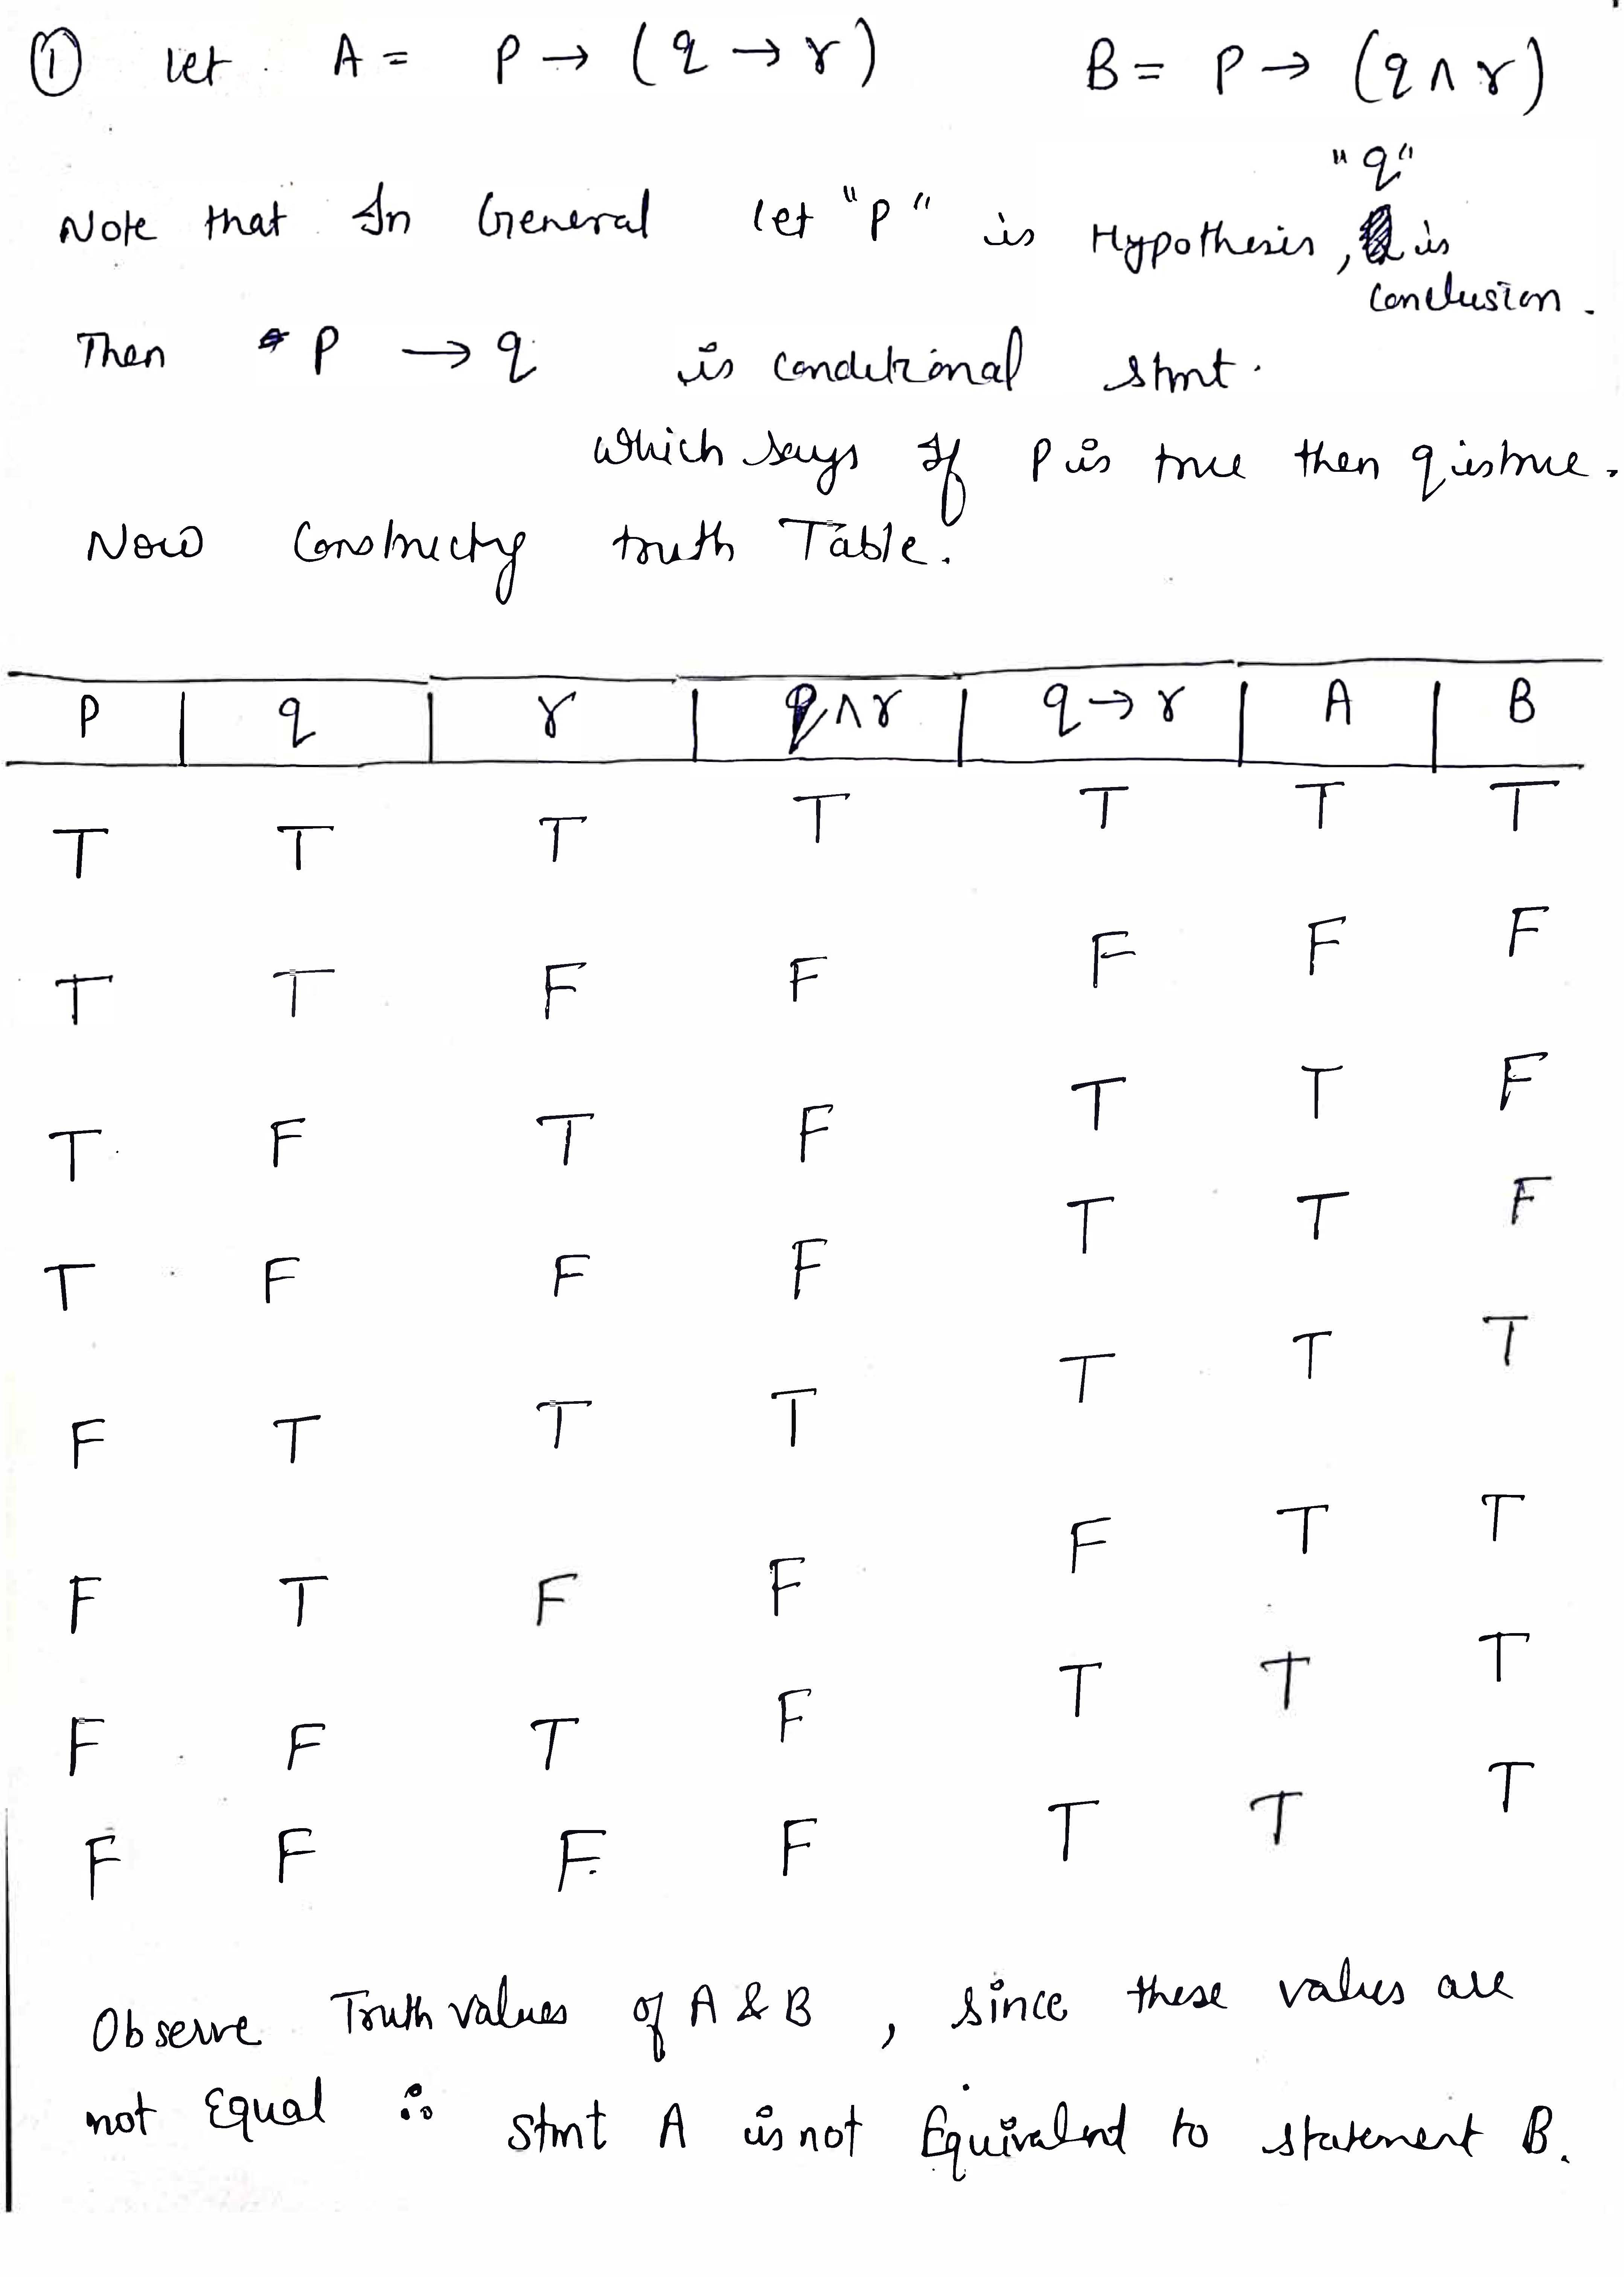 ① let A = P → (q → r) B = P → (q ∧ r)
"q"
Note that In General let "P" is Hypothesis, is
Conclusion.
Then P → q is conditional stmt.
which says If P is true then q is true.
Now Constructg truth Table.
P | q | r | q∧r | q→r | A | B
T T T T T T T
T T F F F F F
T F T F T T F
T F F F T T F
F T T T T T T
F T F F F T T
F F T F T T T
F F F F T T T
Observe Truth values of A & B , since these values are
not Equal ∴ Stmt A is not Equivalent to statement B.